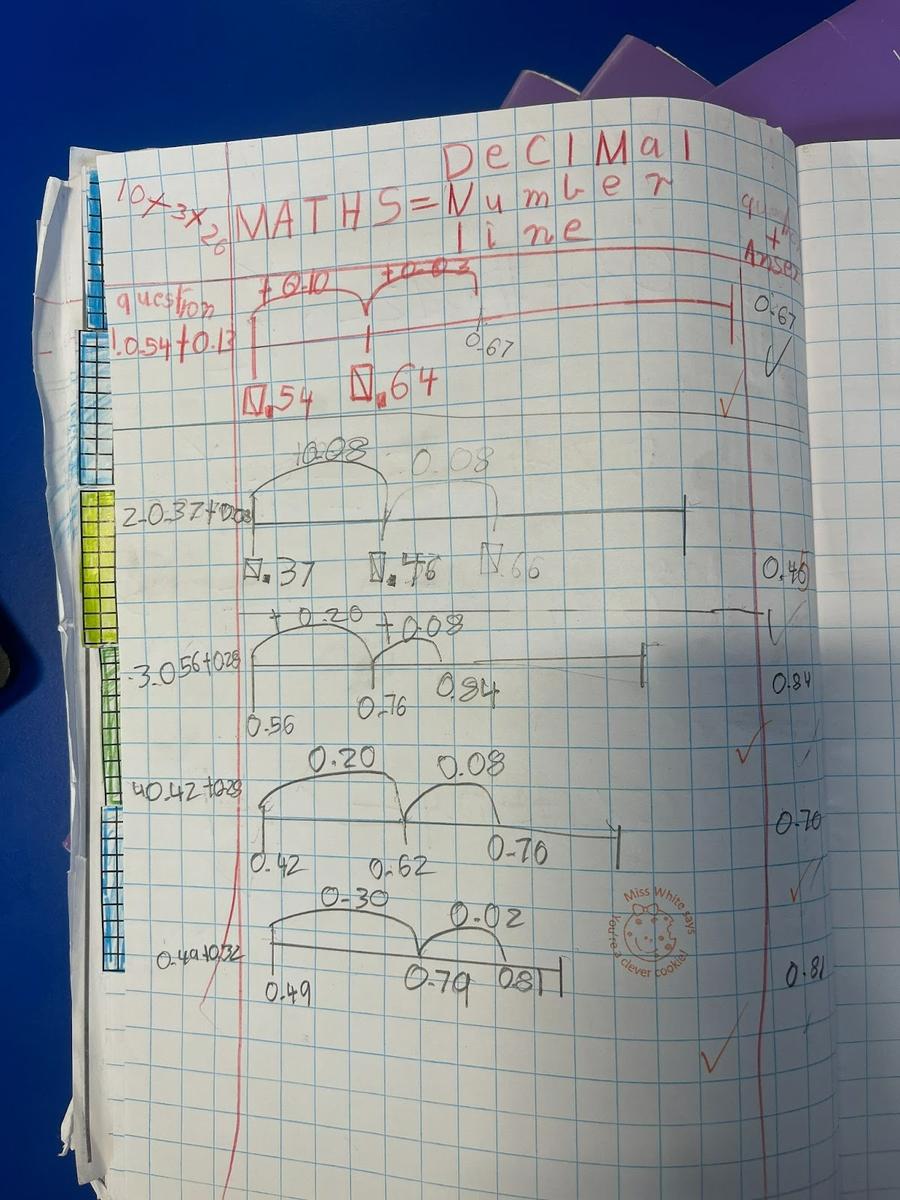 DeCIMal
10x3x26
MATHS = Number
line
+
Anser
question
+0.10 +0.03
1.0.54+0.13
0.67
0.67
0.54 0.64
+0.08 0.08
2.0.37+0.08
0.37 0.46 0.66
0.45
+0.20 +0.08
3.0.56+0.28
0.84
0.84
0.56 0.76
0.20 0.08
4 0.42+0.28
0.70
0.42 0.62 0.70
0.30 0.02
Miss White says
You're a clever cookie!
0.49+0.32
0.81
0.49 0.79 0.81